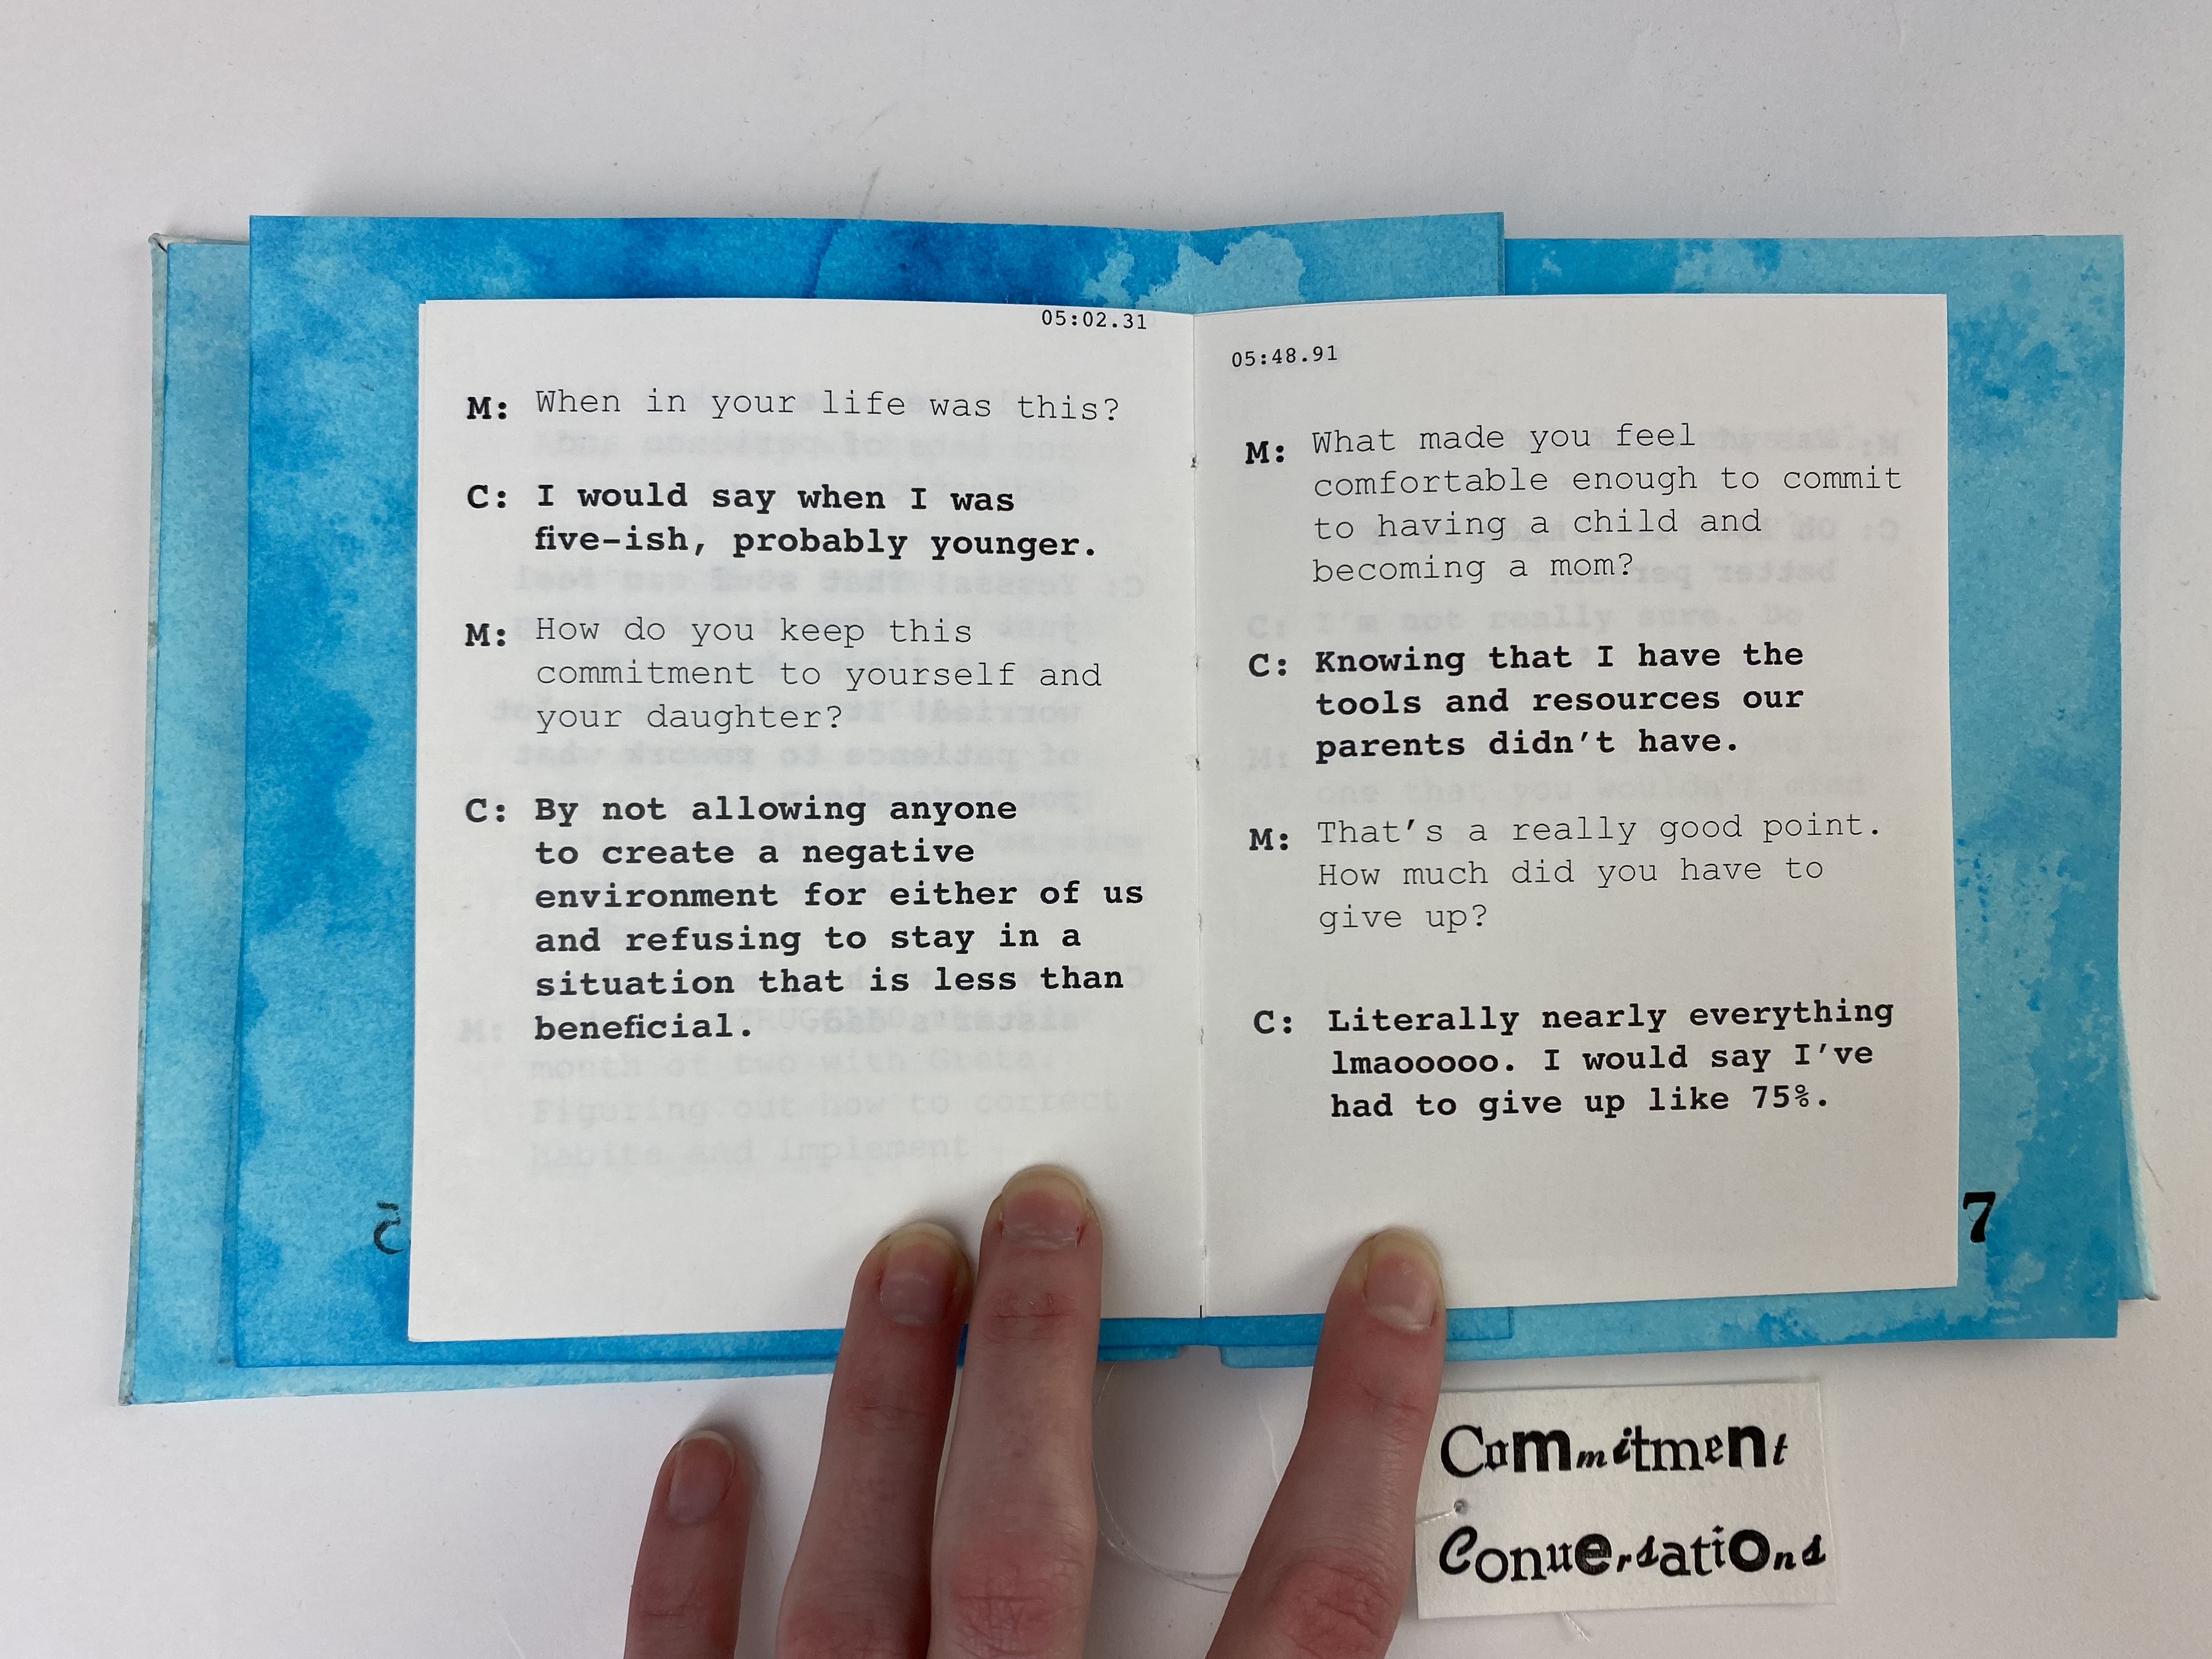 05:02.31
M: When in your life was this?
C: I would say when I was
five-ish, probably younger.
M: How do you keep this
commitment to yourself and
your daughter?
C: By not allowing anyone
to create a negative
environment for either of us
and refusing to stay in a
situation that is less than
beneficial.
05:48.91
M: What made you feel
comfortable enough to commit
to having a child and
becoming a mom?
C: Knowing that I have the
tools and resources our
parents didn't have.
M: That's a really good point.
How much did you have to
give up?
C: Literally nearly everything
lmaooooo. I would say I've
had to give up like 75%.
7
Commitment
Conversations